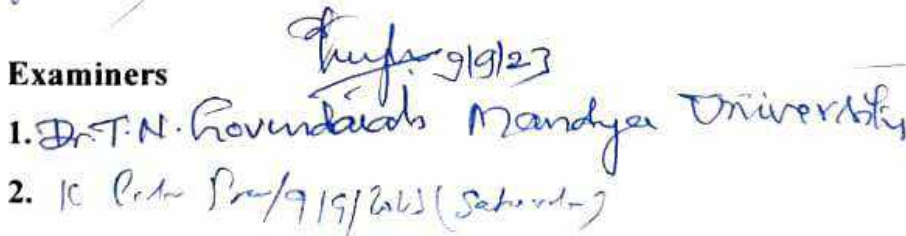 9/9/23
Examiners
1. Dr. T.N. Govindaiah Mandya University
2. K 9/9/2023 (Saturday)